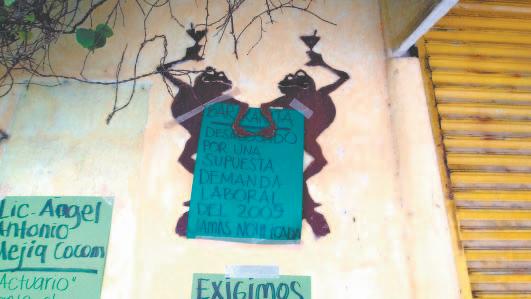 BAR
POR UNA
SUPUESTA
DEMANDA
LABORAL
DEL 2005
JAMAS NOTIFICADA
Lic. Angel
Antonio
Mejia Cocom
"Actuario"
EXIGIMOS